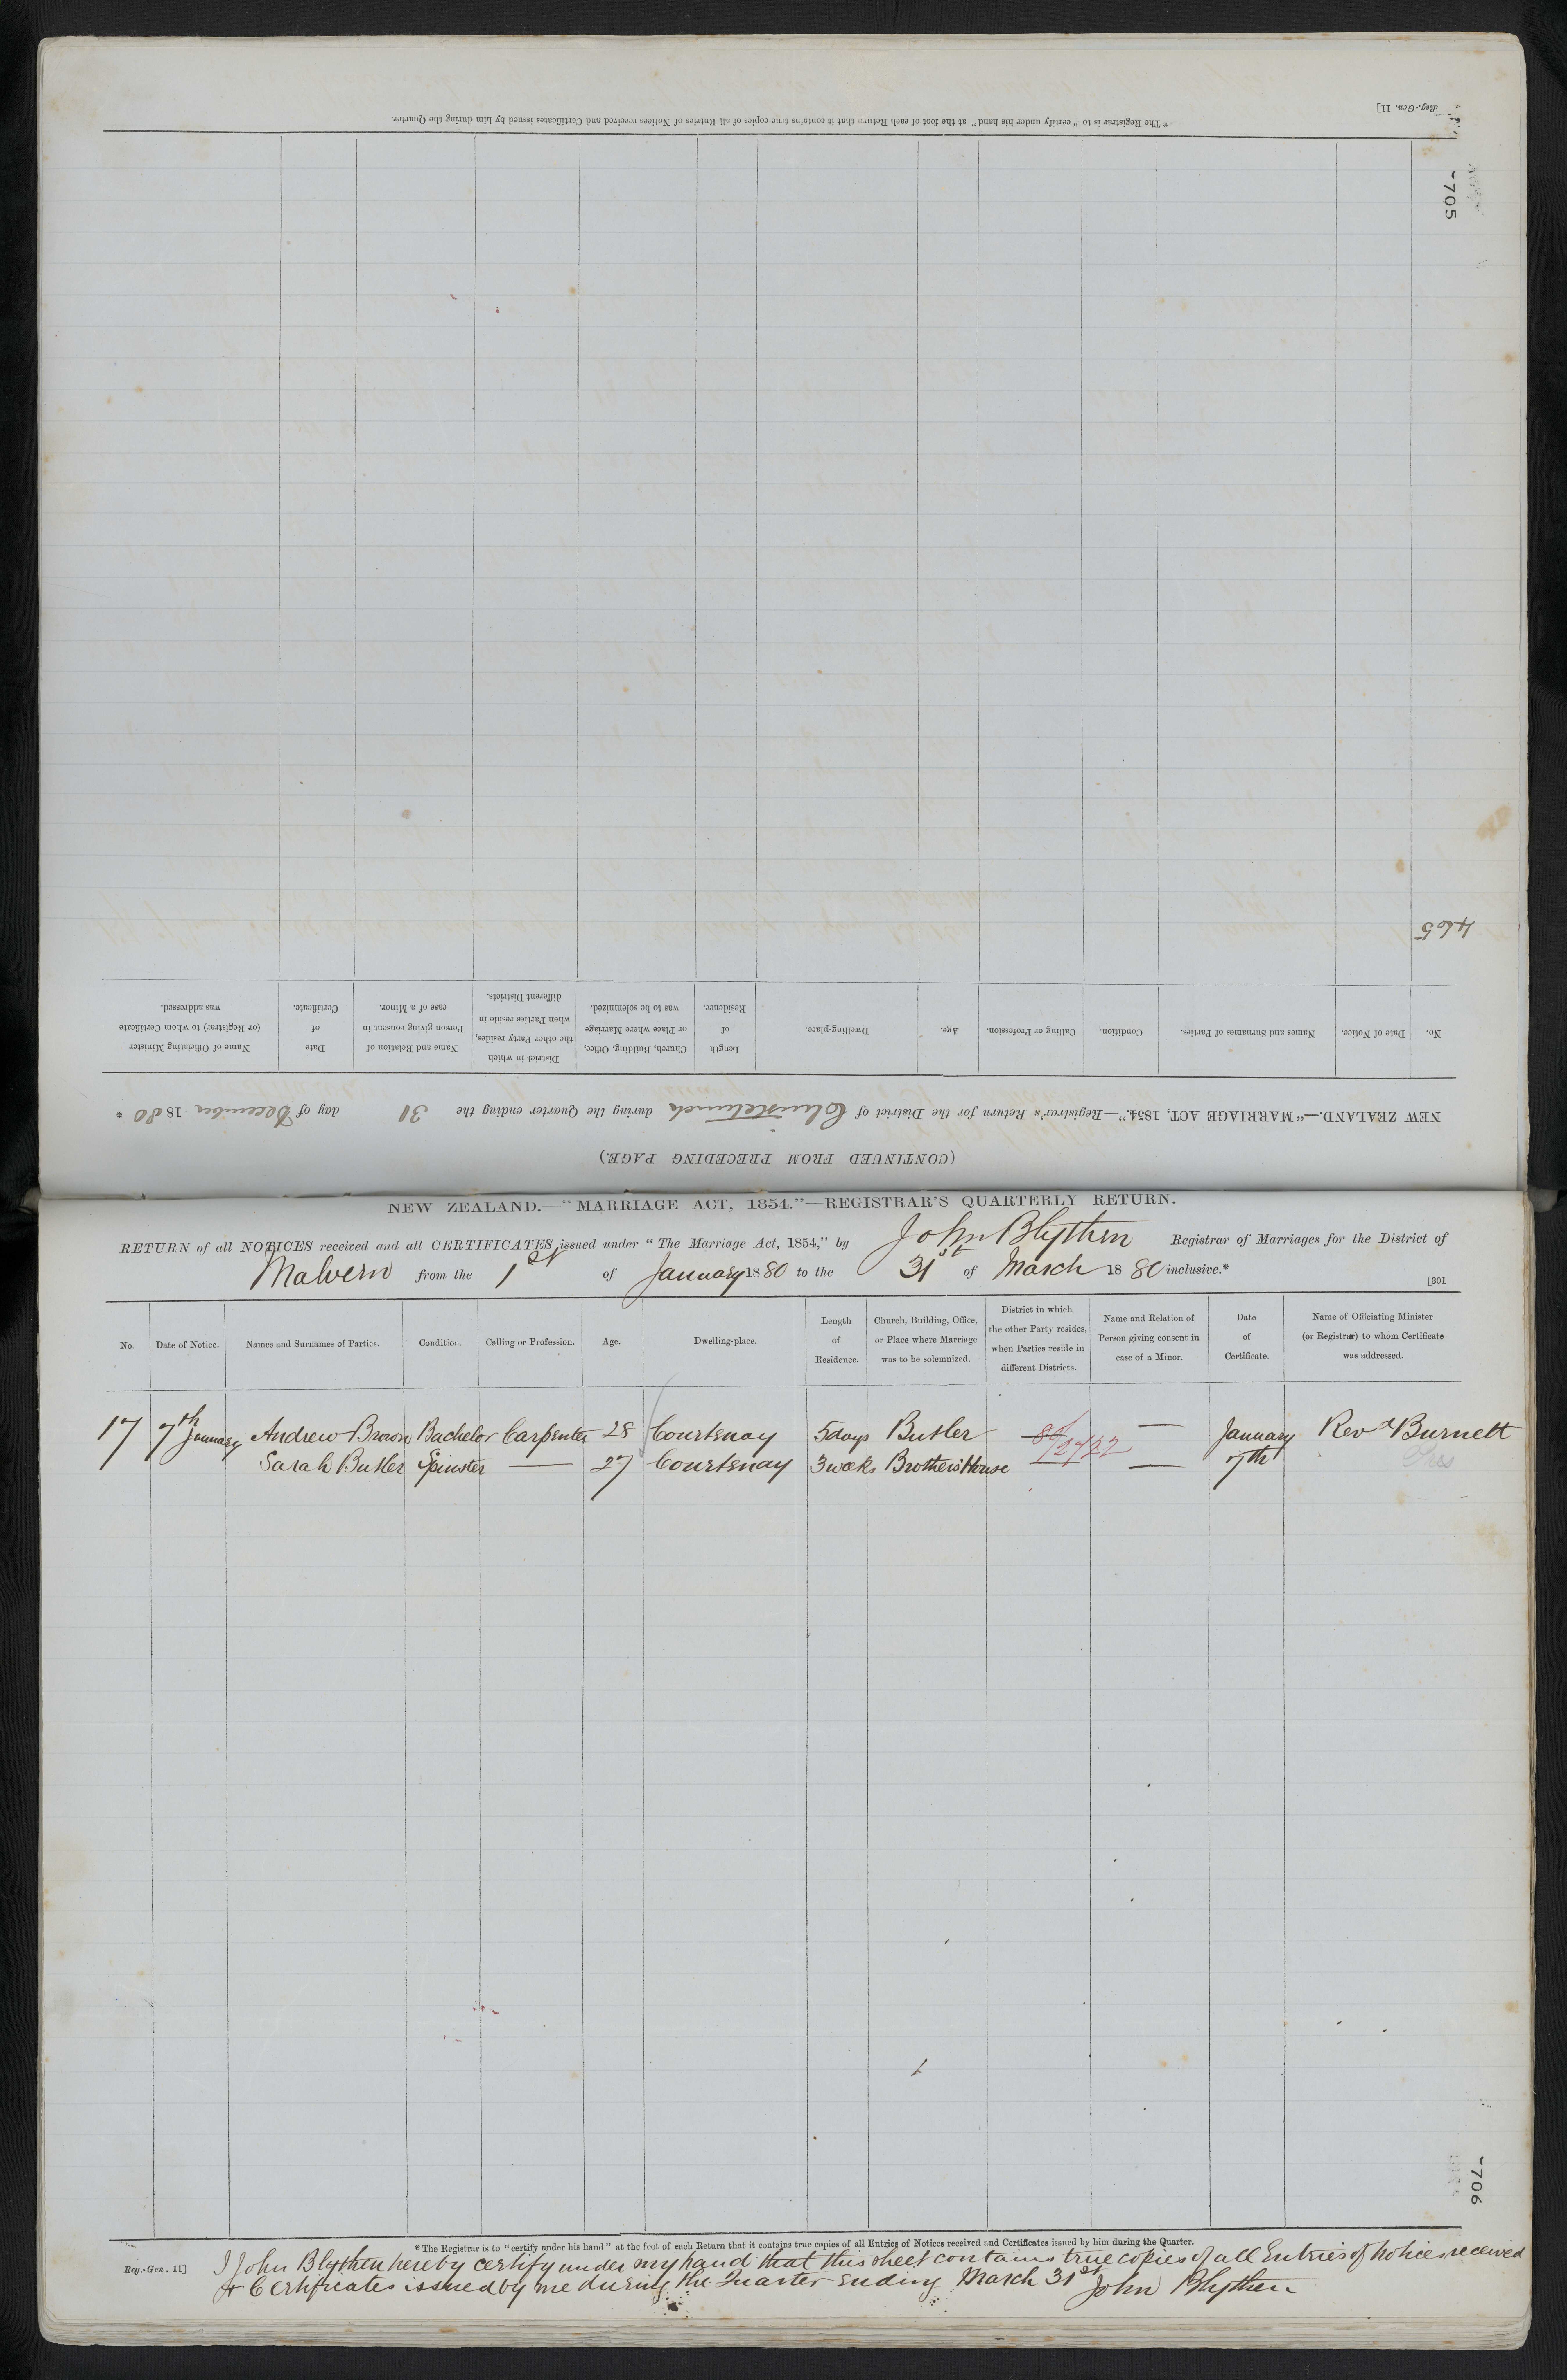 Reg.-Gen. 11]
* The Registrar is to "certify under his hand" at the foot of each Return that it contains true copies of all Entries of Notices received and Certificates issued by him during the Quarter.
705
465
No.
Date of Notice.
Names and Surnames of Parties.
Condition.
Calling or Profession.
Age.
Dwelling-place.
Length
of
Residence.
Church, Building, Office,
or Place where Marriage
was to be solemnized.
District in which
the other Party resides,
when Parties reside in
different Districts.
Name and Relation of
Person giving consent in
case of a Minor.
Date
of
Certificate.
Name of Officiating Minister
(or Registrar) to whom Certificate
was addressed.
NEW ZEALAND.—"MARRIAGE ACT, 1854."—Registrar's Return for the District of Christchurch during the Quarter ending the 31 day of December 1880 *
(CONTINUED FROM PRECEDING PAGE.)
NEW ZEALAND.—"MARRIAGE ACT, 1854."—REGISTRAR'S QUARTERLY RETURN.
RETURN of all NOTICES received and all CERTIFICATES issued under "The Marriage Act, 1854," by John Blythen Registrar of Marriages for the District of
Malvern from the 1st of January 1880 to the 31st of March 1880 inclusive.*
[301
No.
Date of Notice.
Names and Surnames of Parties.
Condition.
Calling or Profession.
Age.
Dwelling-place.
Length
of
Residence.
Church, Building, Office,
or Place where Marriage
was to be solemnized.
District in which
the other Party resides,
when Parties reside in
different Districts.
Name and Relation of
Person giving consent in
case of a Minor.
Date
of
Certificate.
Name of Officiating Minister
(or Registrar) to whom Certificate
was addressed.
17 7th January Andrew Brown Bachelor Carpenter 28 Courtenay 5 days Butler 80/2722 — January Rev d Burnett
Sarah Butler Spinster — 27 Courtenay 3 weeks Brother's House — 7th Pres
706
* The Registrar is to "certify under his hand" at the foot of each Return that it contains true copies of all Entries of Notices received and Certificates issued by him during the Quarter.
Reg.-Gen. 11]
I John Blythen hereby certify under my hand that this sheet contains true copies of all Entries of notices received
& Certificates issued by me during the Quarter ending March 31st John Blythen